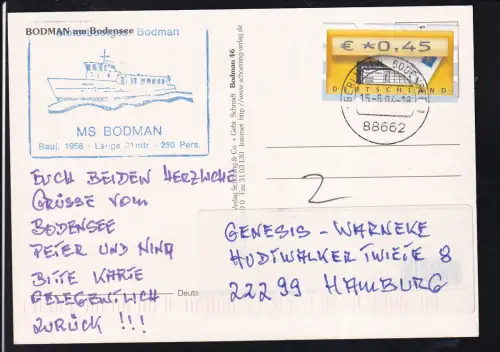 BODMAN am Bodensee
Bodman
MS BODMAN
Bauj. 1956 - Länge 31mtr - 250 Pers.
EUCH BEIDEN HERZLICHE
GRÜSSE VOM
BODENSEE
PETER UND NINA
BITTE KARTE
GELEGENTLICH
ZURÜCK !!!
Bodman 46
& Co · Gebr. Schmidt
Internet http://www.schoening-verlag.de
Fax 31 03 130
€ *0,45
DEUTSCHLAND
15-6.04-18
88662
2
GENESIS - WARNEKE
HUDTWALKERTWIETE 8
22299 HAMBURG